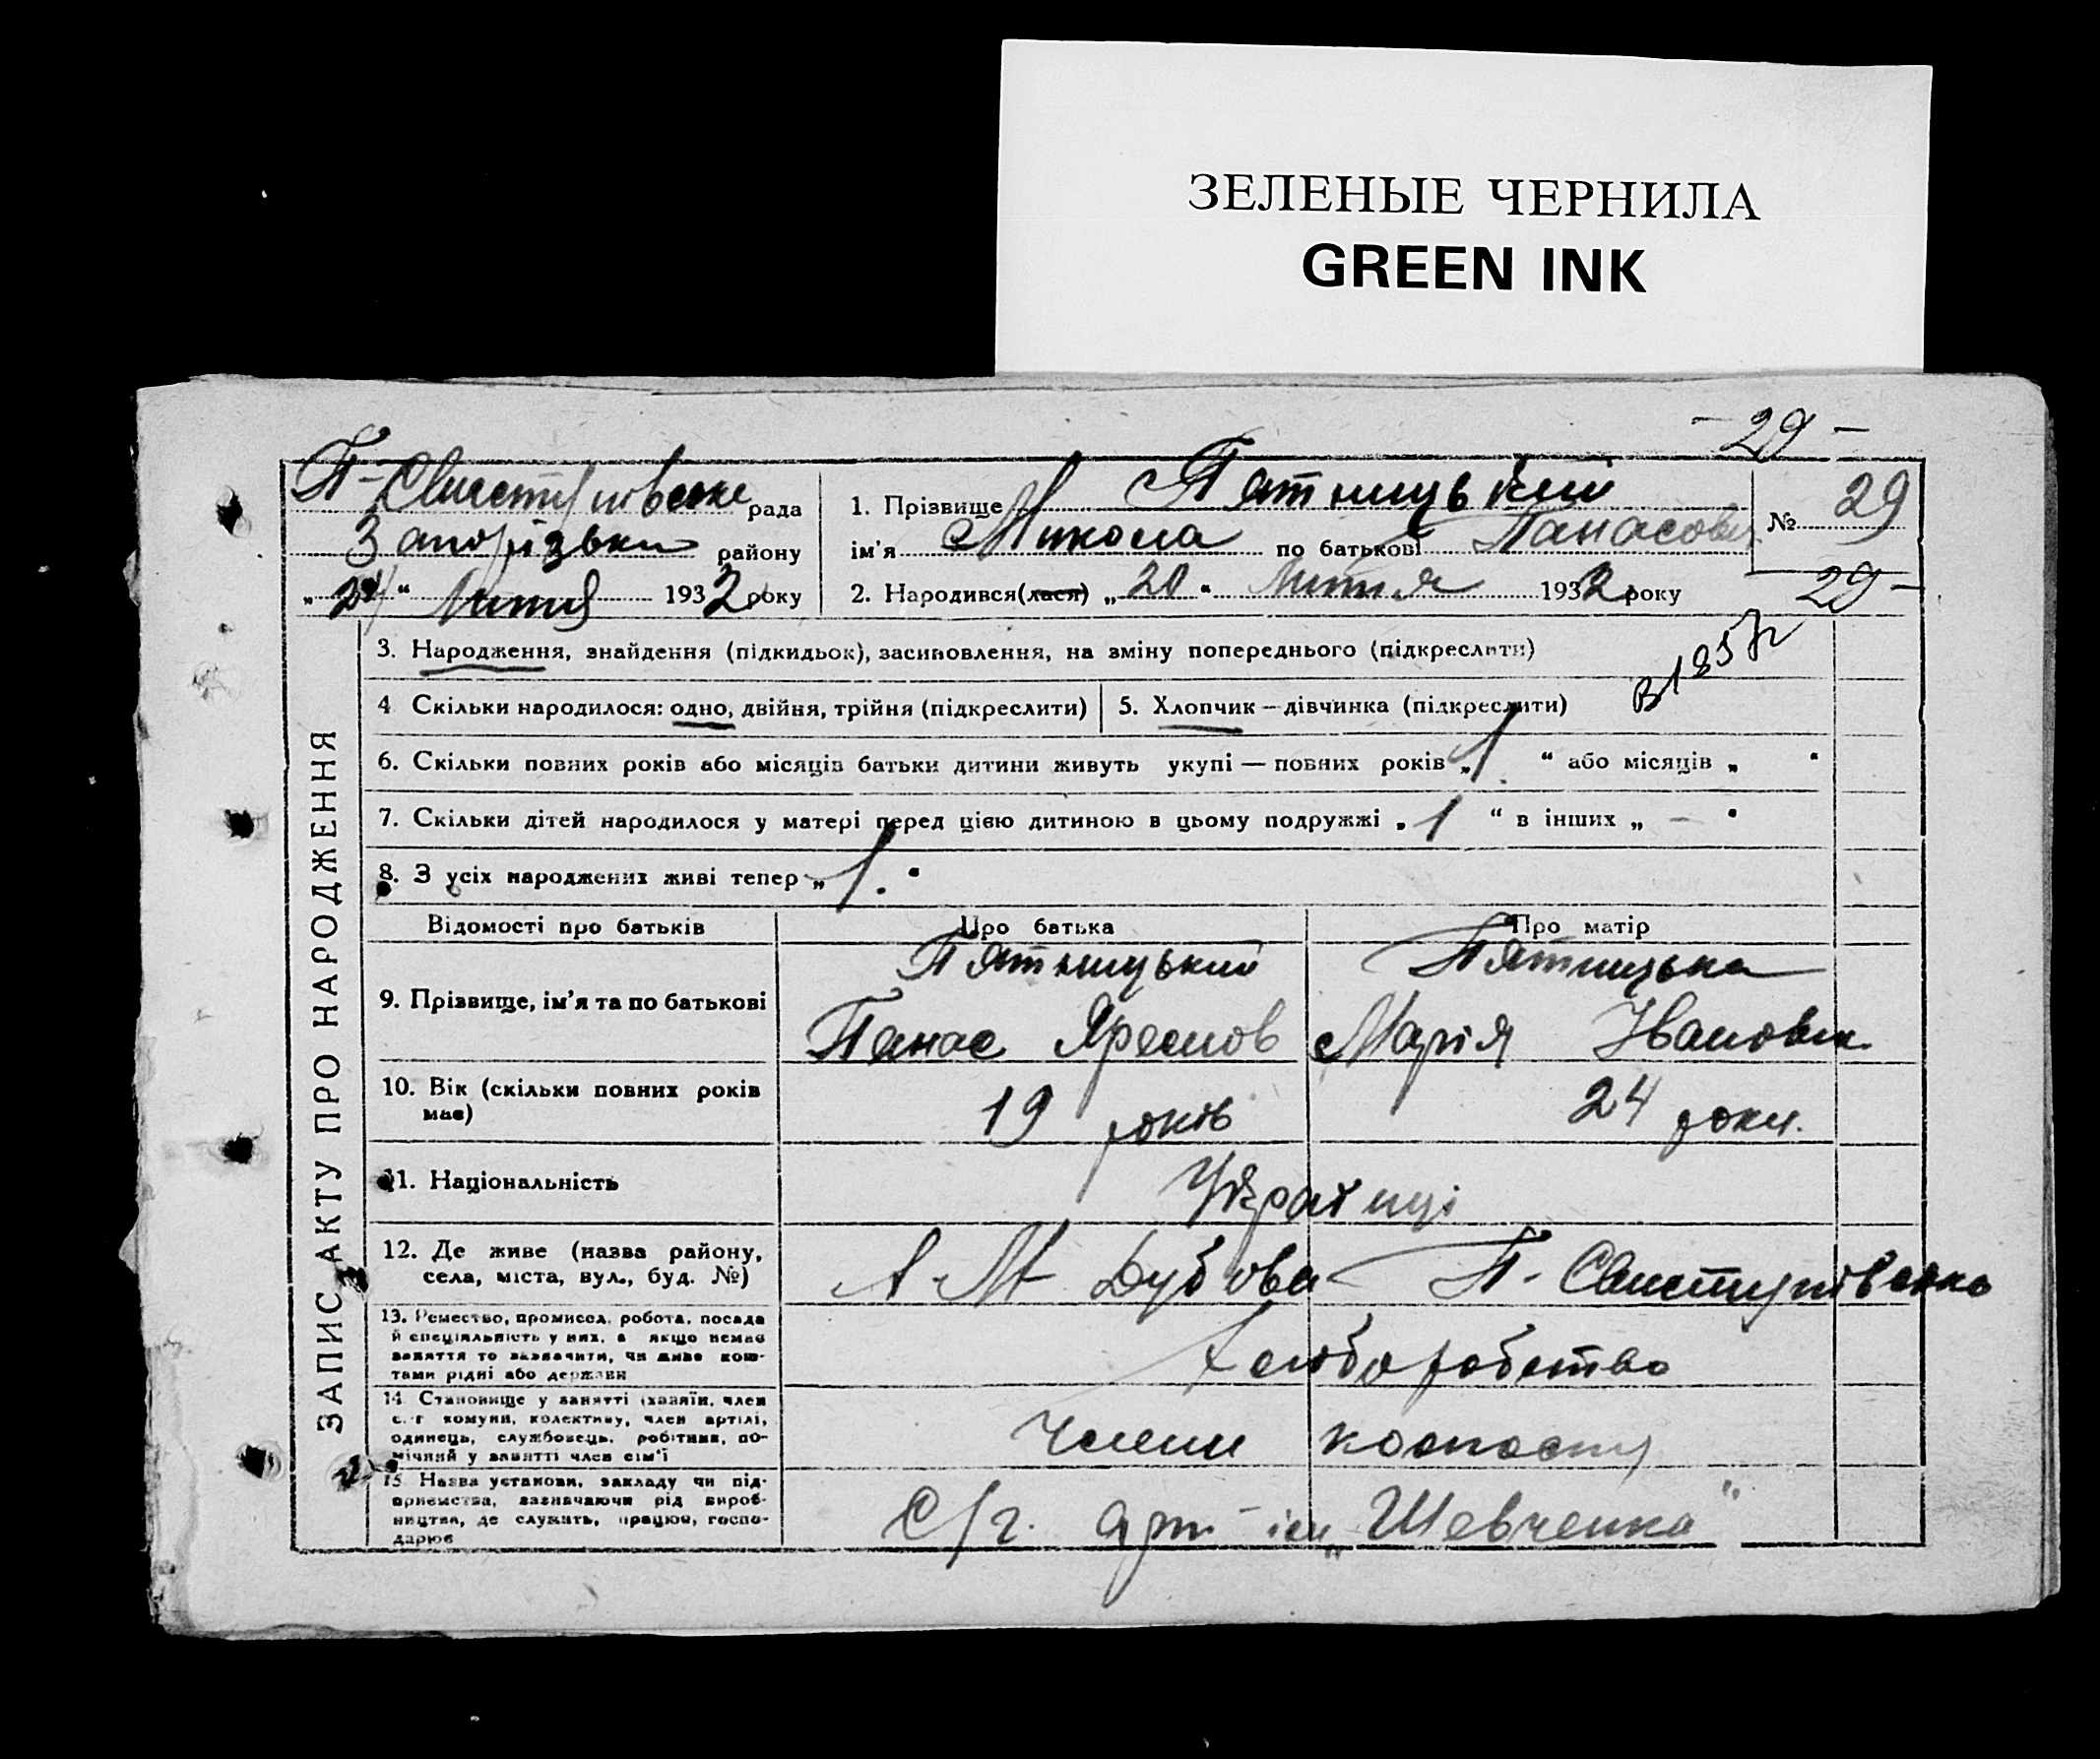 ЗЕЛЕНЫЕ ЧЕРНИЛА
GREEN INK
- 29 -
П-Свистунівська рада
Запорізьки району
„ 24 “ Липня 1932 року
1. Прізвище Пятницький
ім'я Микола по батькові Панасович
2. Народився(лася) „ 20 “ Липня 1932 року
№ 29
29 -
3. Народження, знайдення (підкидьок), засиновлення, на зміну попереднього (підкреслити)
4 Скільки народилося: одно, двійня, трійня (підкреслити)
5. Хлопчик — дівчинка (підкреслити)
6. Скільки повних років або місяців батьки дитини живуть укупі — повних років „ 1 “ або місяців „ “
7. Скільки дітей народилося у матері перед цією дитиною в цьому подружжі „ 1 “ в інших „ – “
8. З усіх народжених живі тепер „ 1. “
ЗАПИС АКТУ ПРО НАРОДЖЕННЯ
Відомості про батьків
Про батька
Про матір
9. Прізвище, ім'я та по батькові
Пятницький
Панас
Пятницька
Марія Івановна
10. Вік (скільки повних років має)
19 років
24 роки.
11. Національність
Українці
12. Де живе (назва району,
села, міста, вул., буд. №)
Дубова П- Свистунівська
13. Ремество, промисел, робота, посада
й спеціяльність у них, а якщо немає
заняття то зазначити, чи живе кош-
тами рідні або держави
Хліборобство
14. Становище у занятті (хазяїн, член
с.-г комуни, колективу, член артілі,
одинець, службовець, робітник, по-
мічний у занятті член сім'ї
Члени колгоспу
15. Назва установи, закладу чи під-
приємства, зазначаючи рід вироб-
ництва, де служить, працює, госпо-
дарює
С/г. арт ім „Шевченка“